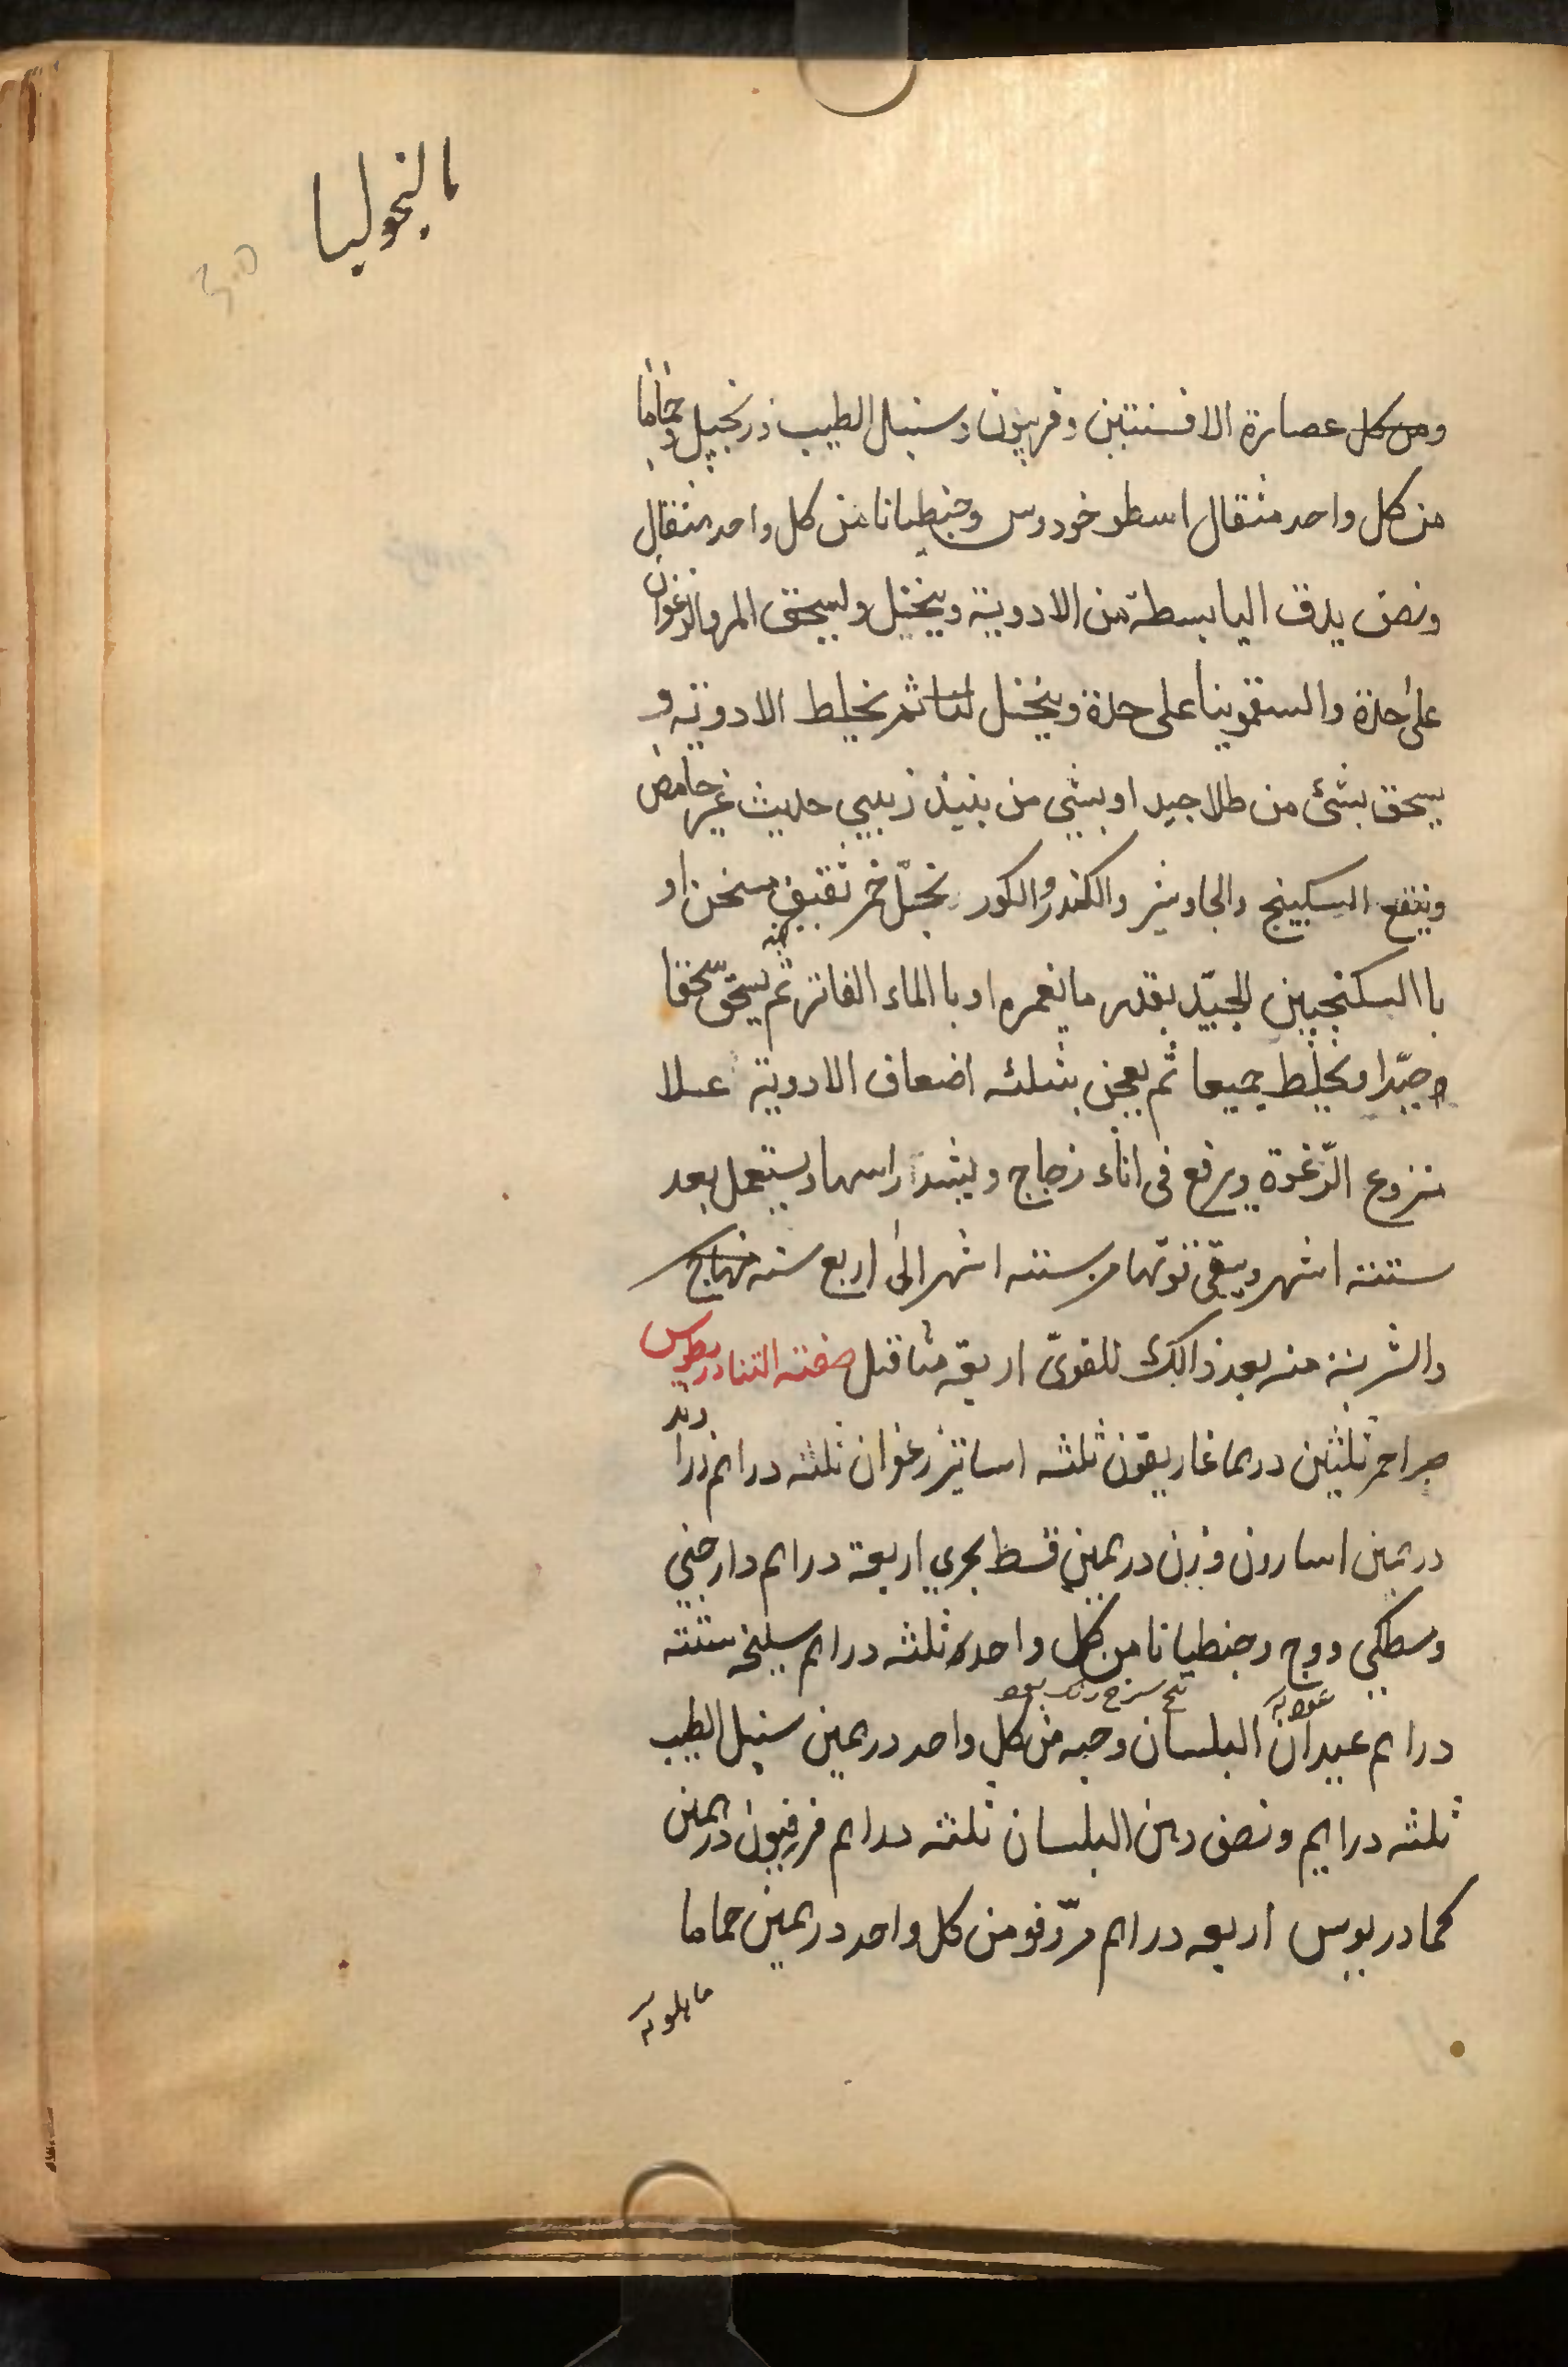 مالنخوليا
ومن كل عصارة الافسنتين وفربيون وسنبل الطيب وزنجبيل وحماما
من كل واحد مثقال اسطوخودوس وجنطيانا من كل واحد مثقال
ونصف يدق اليابسطة من الادوية وينخل وليسحق المر والزعفران
على حدة والسقمونيا على حدة وينخل لتا ثم يخلط الادوية و
يسحق بشئ من طلا جيد او بشي من بنيذ زبيبي حديث غير حامض
وينقع السكبينج والجاوشير والكندر والكور بخل خمر ثقيف سخن او
با السكنجبين الجيّد بقدر ما يغمره او با الماء الفاتر ثم يسحق سحقا
جيّدا ويخلط جميعا ثم يعجن بثلثه اضعاف الادوية عسلا
منزوع الرّغوة ويرفع فى اناء زجاج ويشد راسها ويستعمل بعد
ستة اشهر ويبقى قوّتها من ستة اشهر الى اربع سنه منهاج
والشربة منه بعد ذالك للقوىّ اربعة مثاقيل صفته التنادريطوس
صبر احمر ثلثين درهما غاريقون ثلثه اساتير زعفران ثلثه دراهم زراوند
درهمين اسارون وزن درهمين قسط بحري اربعة دراهم دارصيني
ومسطكي ووج وجنطيانا من كل واحد ثلثه دراهم سليخه ستة
دراهم عيدان البلسان وحبه من كل واحد درهمين سنبل الطيب
ثلثه دراهم ونصف دهن البلسان ثلثه دراهم فرفيون درهمين
كمادريوس اربعه دراهم مرّ وفو من كل واحد درهمين حماما